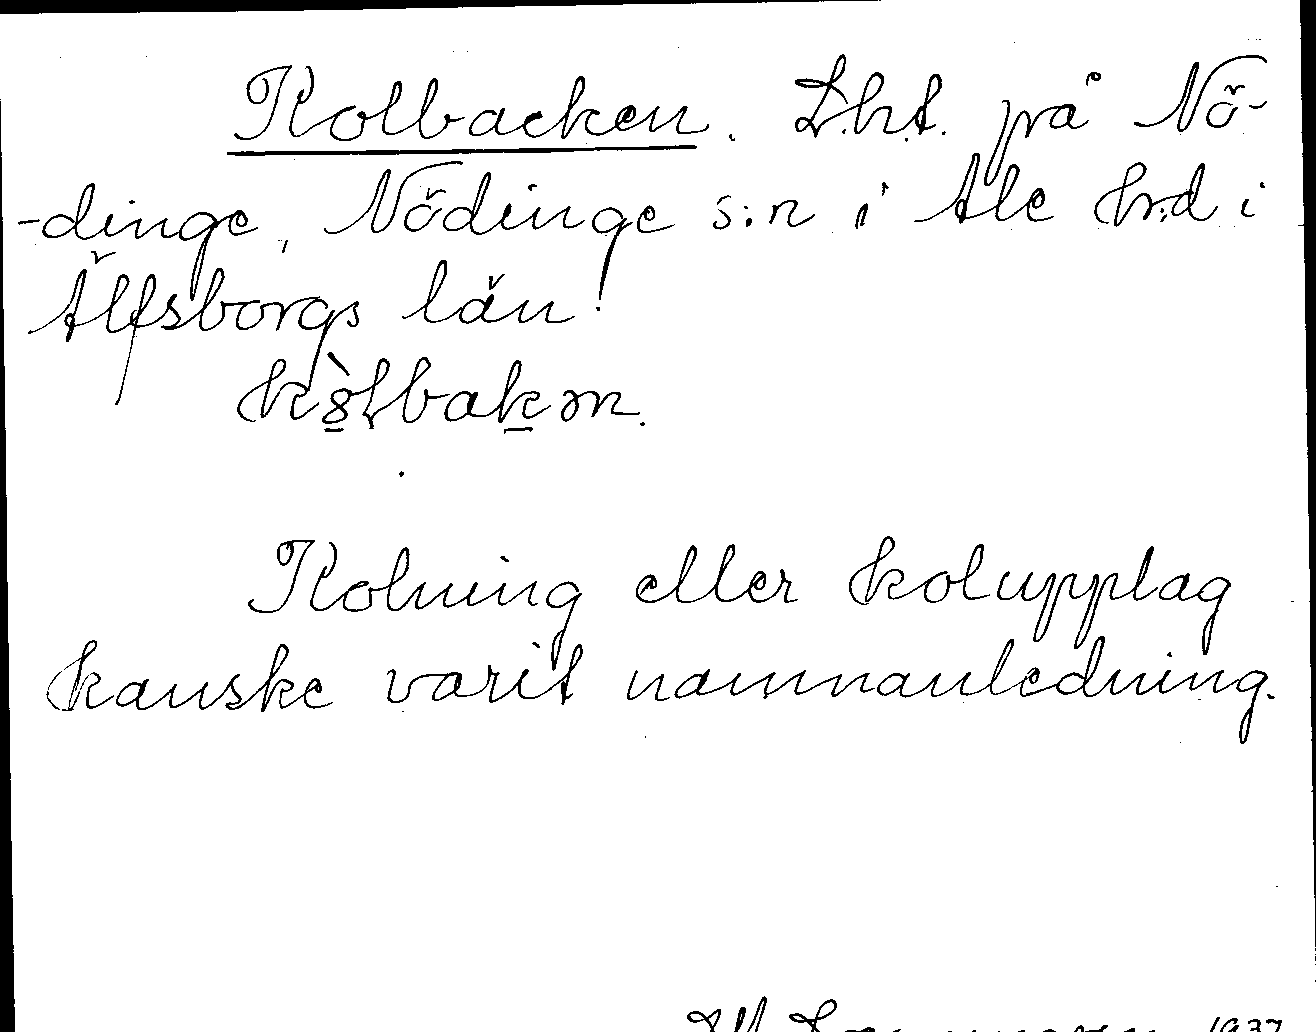 Kolbacken. Lht. på Nö-
-dinge, Nödinge s:n i Ale hrd i
Älfsborgs län.
kòlbakən.
Kolning eller kolupplag
kanske varit namnanledning.
1937